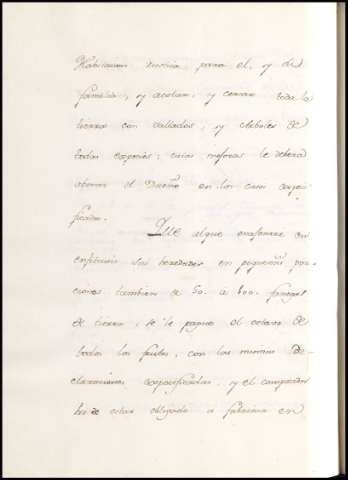 Habitacion precisa para el, y su
familia, y acotar, y cerrar toda la
tierra con vallados, y Arboles de
todas especies; cuias mejoras le deberá
abonar el Dueño en los casos expe-
sificados.
Que al que enagenare en
enfiteusis sus heredades en pequeñas por-
ciones tambien de 50. à fanegas
de tierra, se le pague el octavo de
todos los frutos, con las mismas de-
claraciones expecificadas, y el comprador
ha de estar obligado à fabricar en